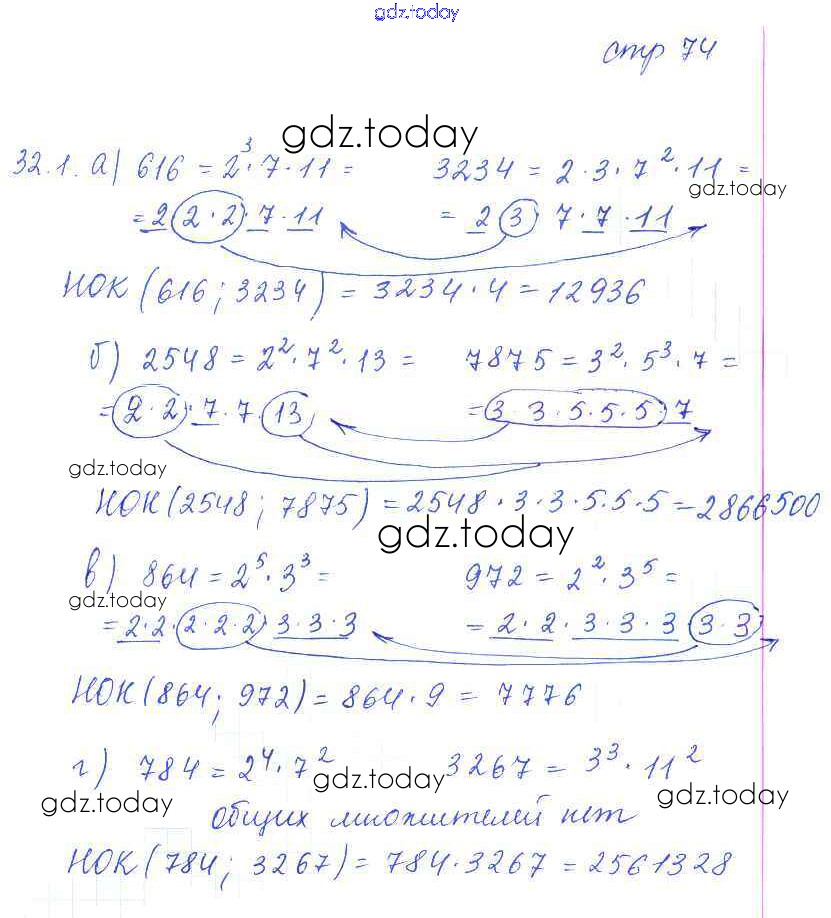 gdz.today
стр 74
gdz.today
32.1. а) 616 = 2³·7·11 = 3234 = 2·3·7²·11 =
gdz.today
= 2(2·2)·7·11 = 2(3) 7·7·11
НОК (616; 3234) = 3234·4 = 12936
б) 2548 = 2²·7²·13 = 7875 = 3²·5³·7 =
= (2·2)·7·7(13) = (3·3·5·5·5)·7
gdz.today
НОК (2548; 7875) = 2548·3·3·5·5·5 = 2866500
gdz.today
в) 864 = 2⁵·3³ = 972 = 2²·3⁵ =
gdz.today
= 2·2·(2·2·2) 3·3·3 = 2·2·3·3·3 (3·3)
НОК (864; 972) = 864·9 = 7776
г) 784 = 2⁴·7² 3267 = 3³·11²
gdz.today
gdz.today gdz.today
общих множителей нет
НОК (784; 3267) = 784·3267 = 2561328